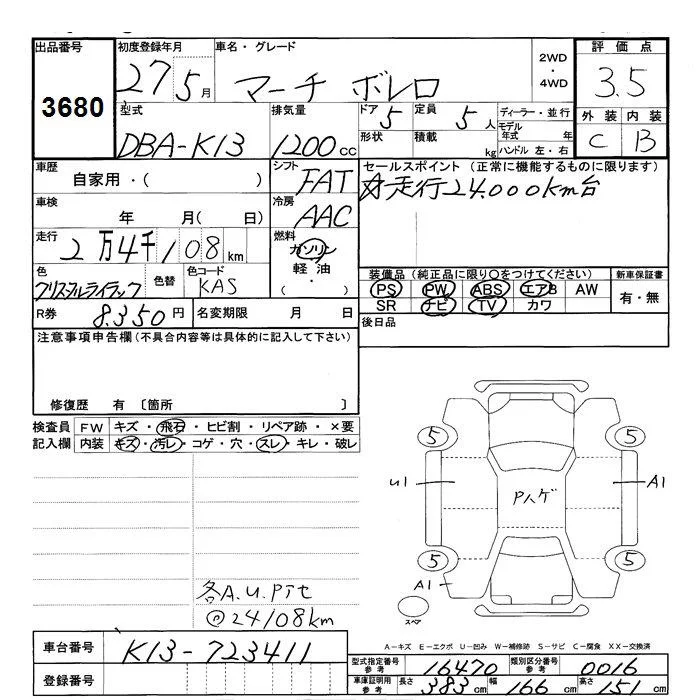 出品番号 初度登録年月 車名・グレード 2WD・4WD 評価点
3680 27 5月 マーチ ボレロ 3.5
型式 排気量 ドア 5 定員 5人 ディーラー・並行 外装 内装
DBA-K13 1200cc 形状 積載 kg モデル年式 年 C B
ハンドル 左・右
車歴 シフト セールスポイント (正常に機能するものに限ります)
自家用・( ) FAT 走行24.000km台
車検 冷房
年 月( 日) AAC
走行 2万4千108km 燃料 ガソリン
色 色替 色コード 軽油 装備品 (純正品に限り○をつけてください) 新車保証書
クリスタルライラック KAS ・( ) PS PW ABS エアB AW 有・無
R券 8.350円 名変期限 月 日 SR ナビ TV カワ
注意事項申告欄(不具合内容等は具体的に記入して下さい) 後日品
修復歴 有 〔箇所 〕
検査員 FW キズ・飛石・ヒビ割・リペア跡・×要
記入欄 内装 キズ・汚レ・コゲ・穴・スレ・キレ・破レ
5 5
U1 Pハゲ A1
5 5
A1
スペア
各A.U.Pﾃｾ
@24108km
車台番号 K13-723411 A-キズ E-エクボ U-凹み W-補修跡 S-サビ C-腐食 XX-交換済
型式指定番号 参考 16470 類別区分番号 参考 0016
登録番号 車庫証明用 参考 長さ 383cm 幅 166cm 高さ 151cm